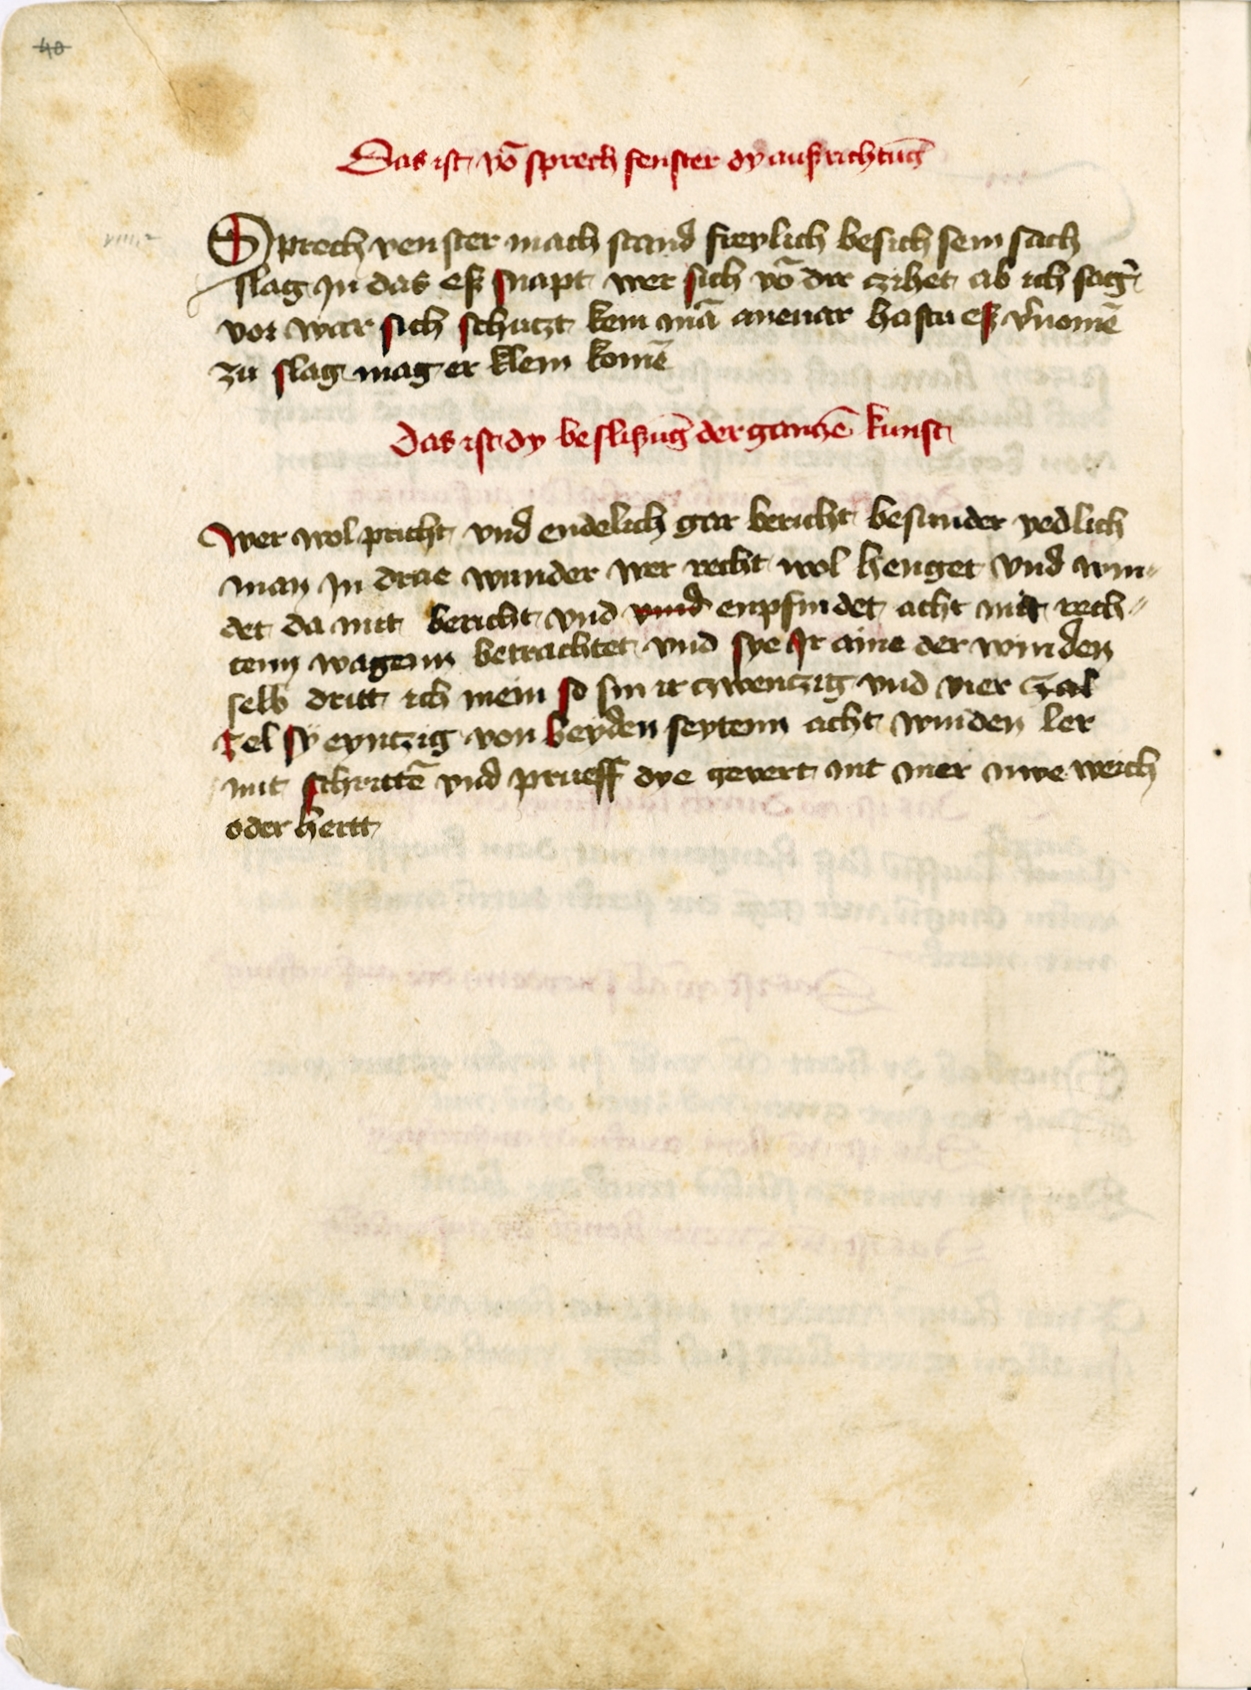 40
Das ist vō sprech fenster dy ausrichtūg
Sprech venster mach stand freylich besich sein sach
slag In das eß snapt wer sich vō dir czihet ab ich sag
vor war sich schutzt kein mā aneuar hastu eß v̄nomē
zu slag mag er klein komē
Das ist dy beslisūg der ganczē kunst
Wer wol pricht vnd endelich gar bericht besunder yedlich
man In drae wunder wer recht wol henget vnd win-
det da mit bericht vnd vnnd enpfindet acht mit rech-
tenn wagenn betrachtet vnd sye Ir aine der winden
selb dritt ich mein so sin ir czwenczig vnd vier czal
czel sy eyntzig von beyden seytenn acht winden ler
mit schrittē vnd prueff dye gevert nit mer nwe weich
oder hertt